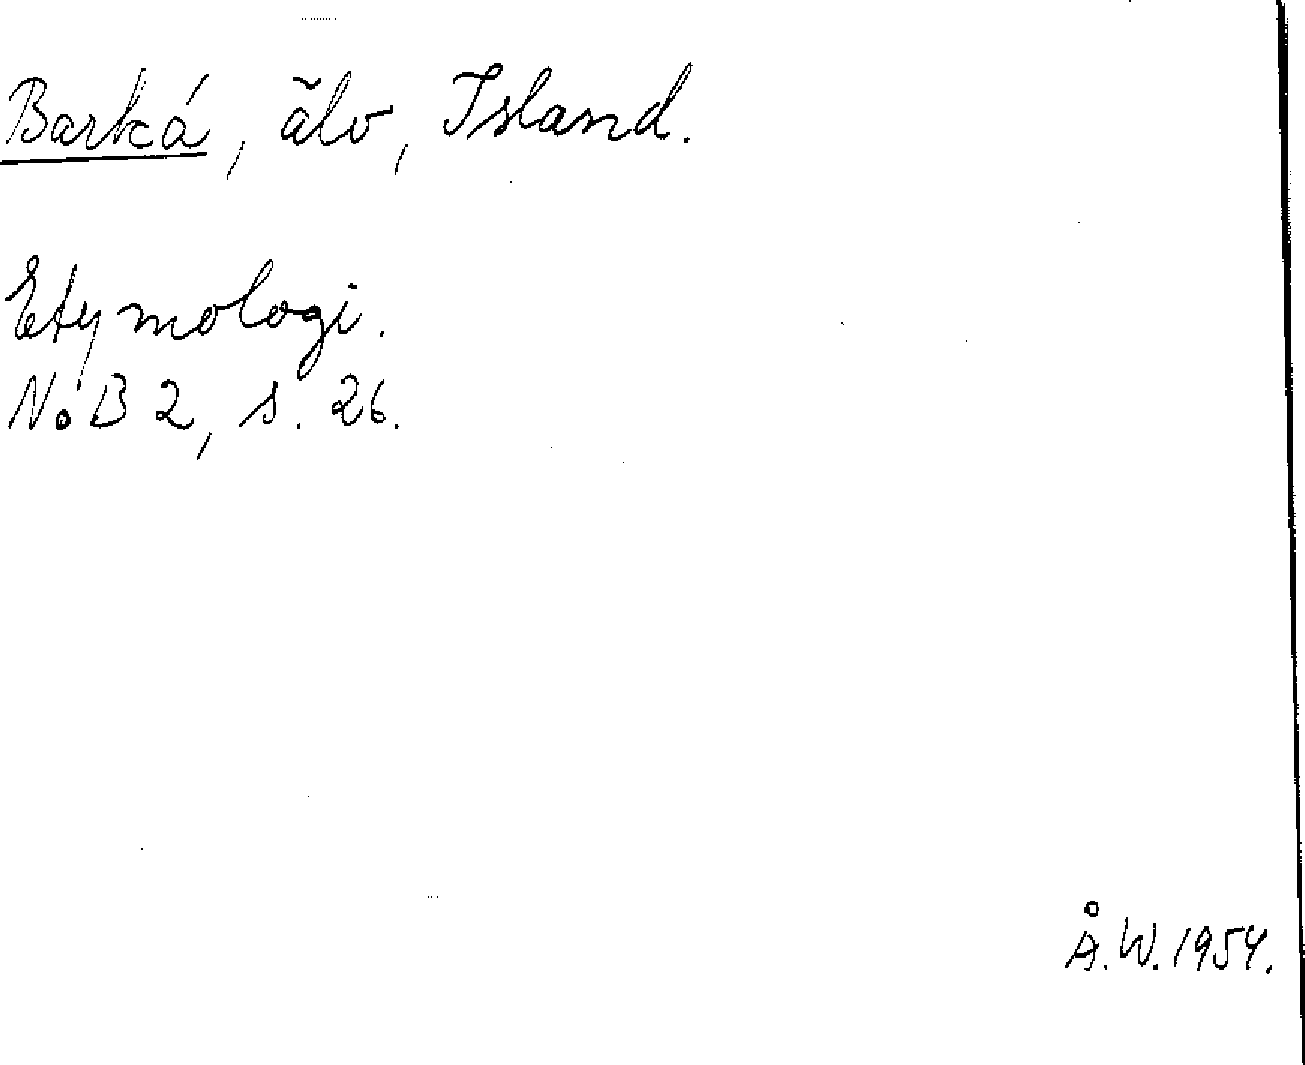 Barká, älv, Island.
Etymologi.
NoB 2, s. 26.
Å.W. 1954.